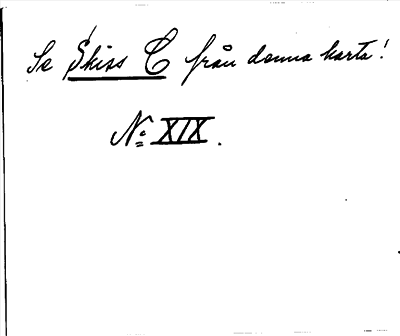 Se Skiss C från denna karta!
No XIX.